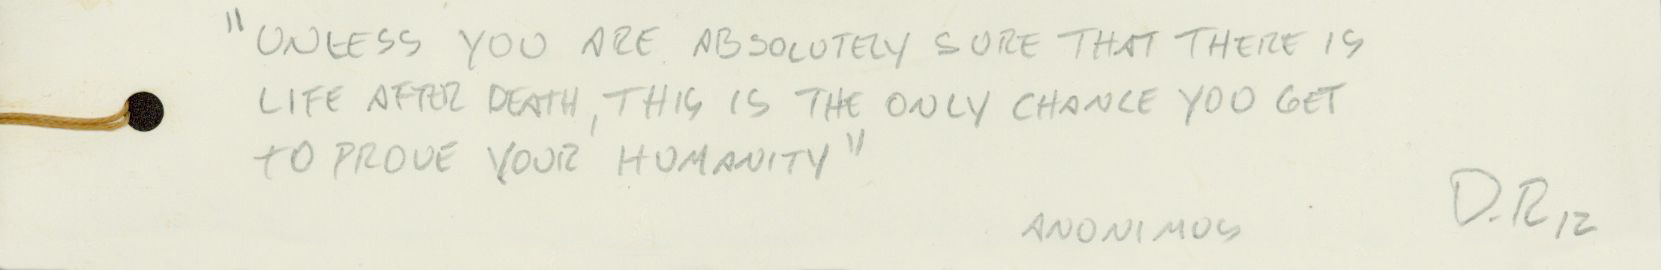 "UNLESS YOU ARE ABSOLUTELY SURE THAT THERE IS
LIFE AFTER DEATH, THIS IS THE ONLY CHANCE YOU GET
TO PROVE YOUR HUMANITY"
ANONIMOS
D.R 12